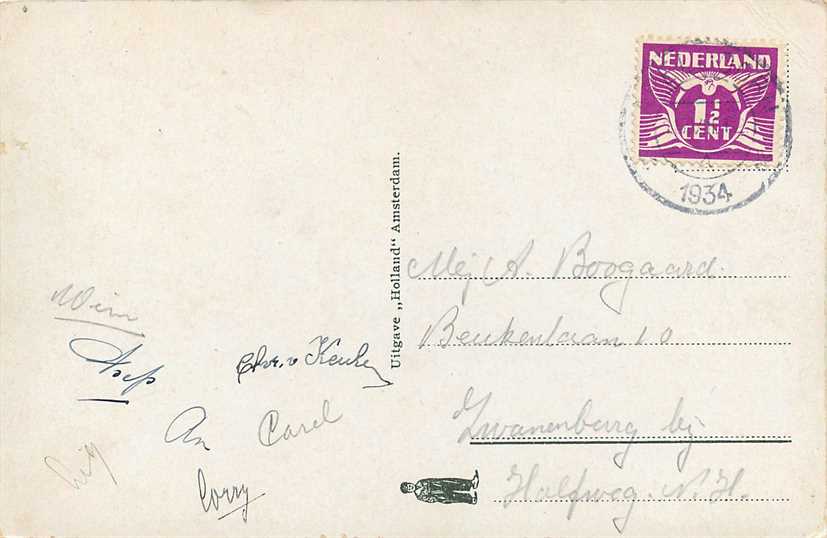 NEDERLAND
1½
CENT
1934
Uitgave „Holland" Amsterdam.
Mej A. Boogaard.
Beukenlaan 10
Zwanenburg bij
Halfweg. N. H.
Wim
An
Carel
Corry